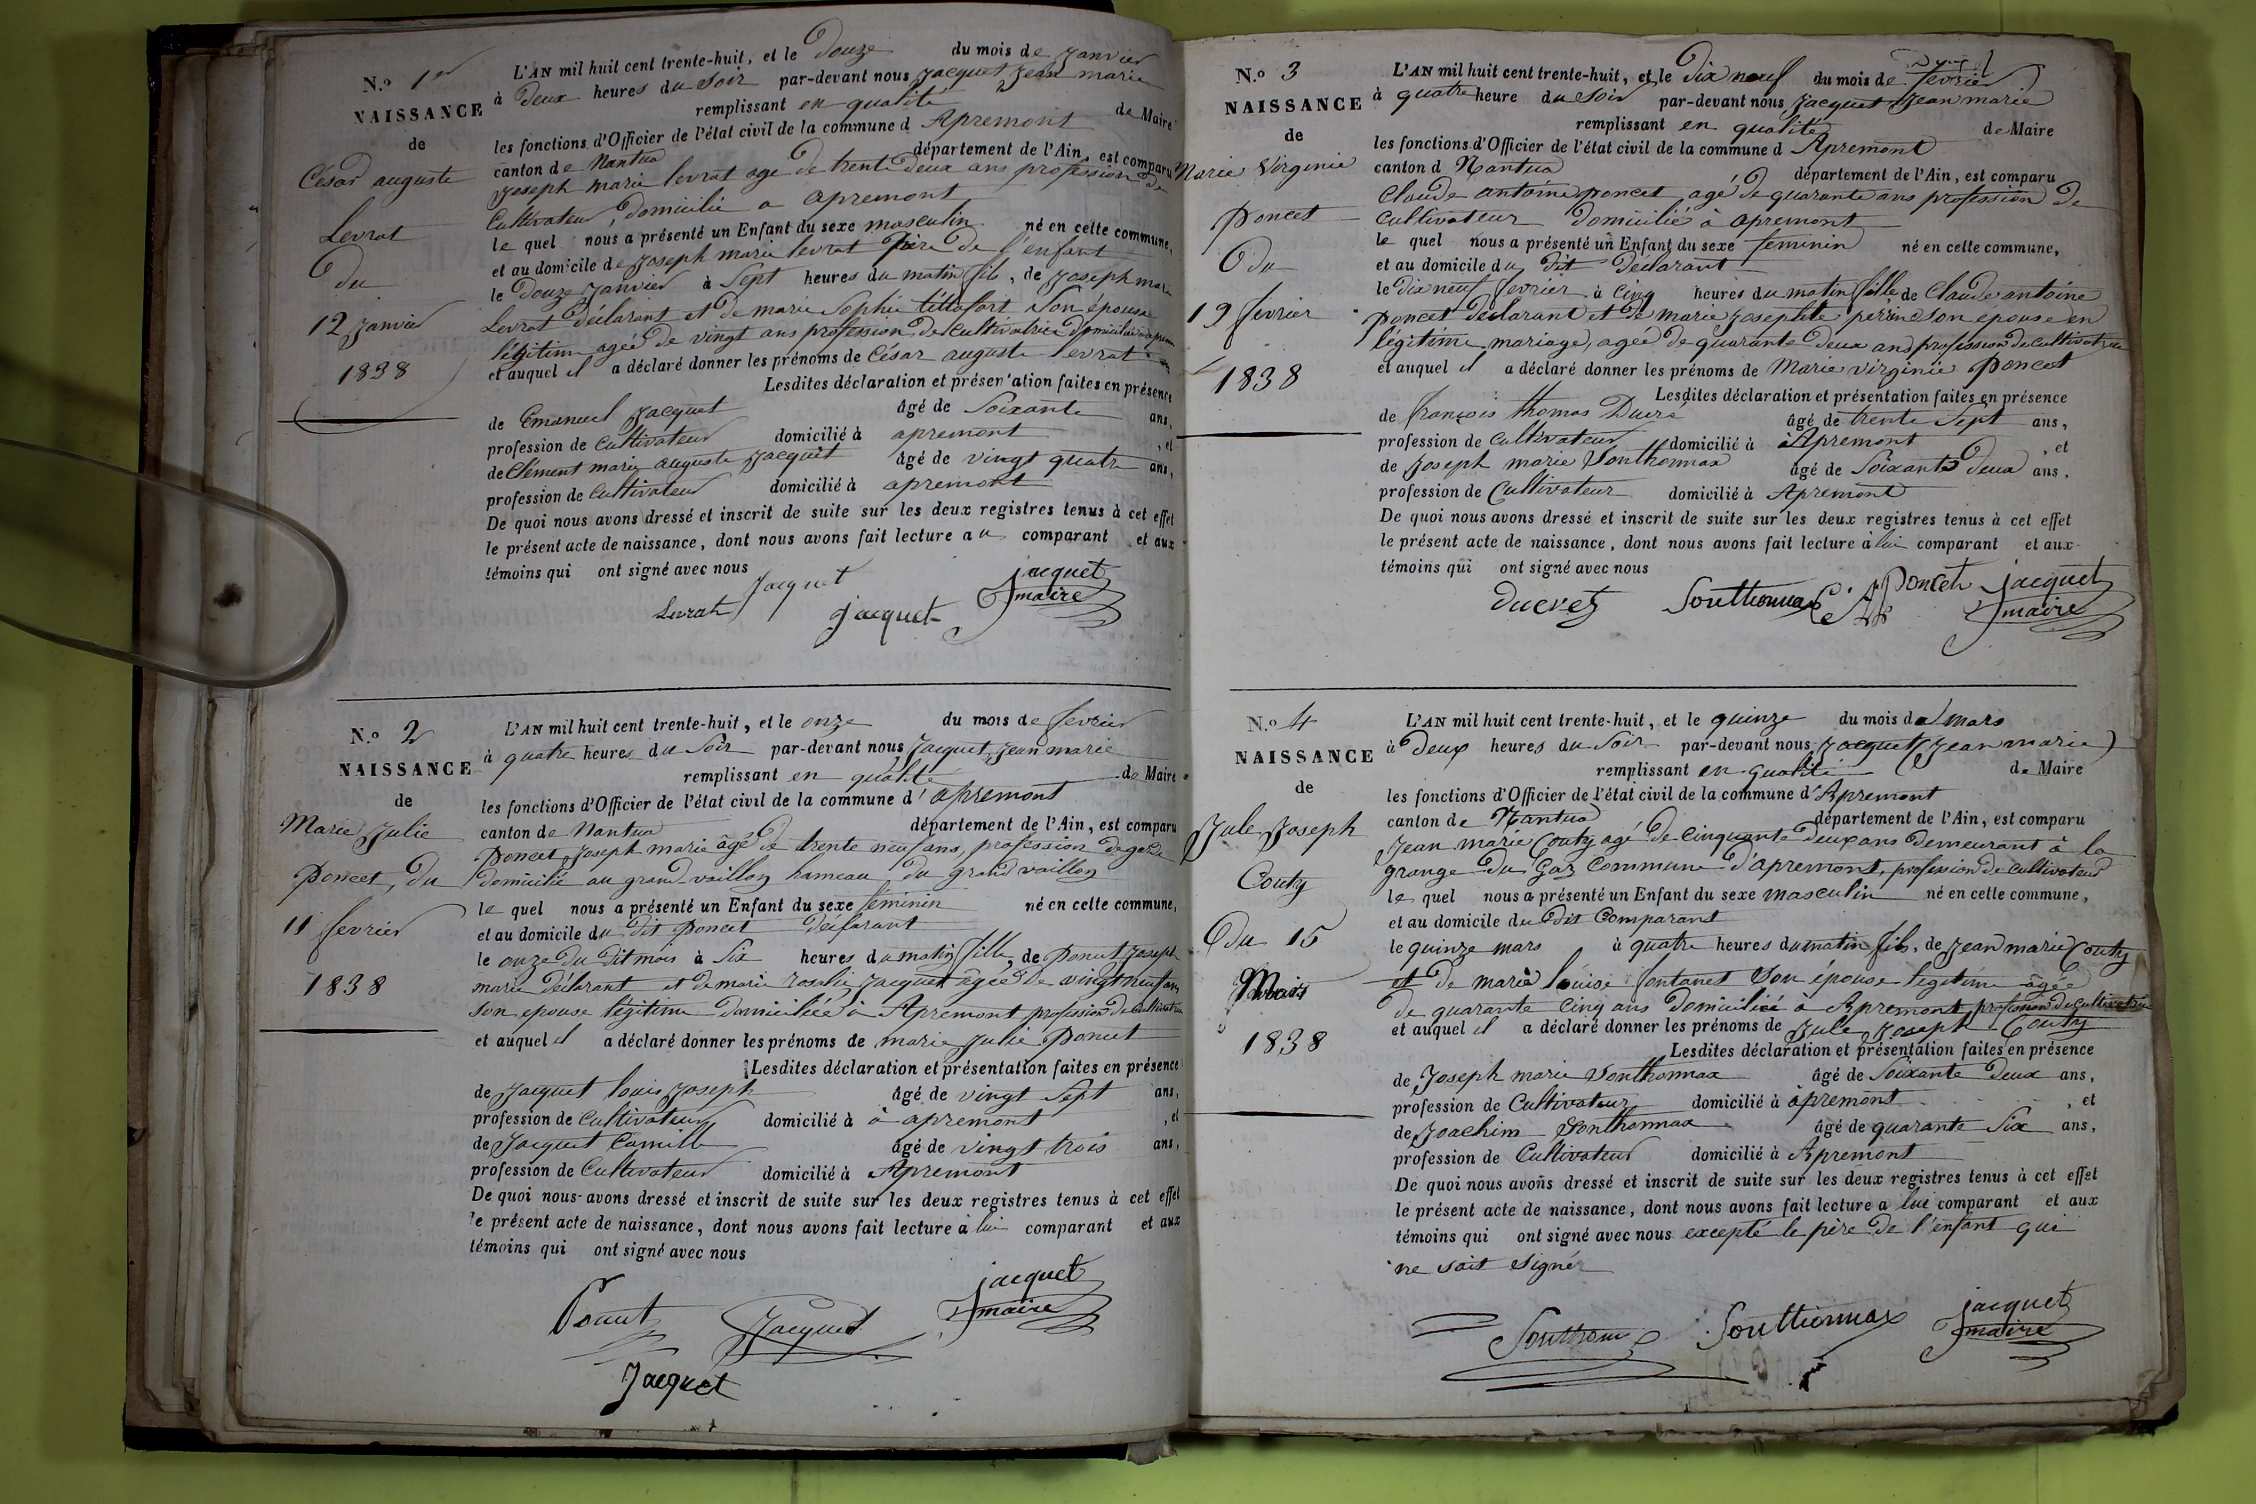 N.o 1er
NAISSANCE
de
César auguste
Levrat
du
12 janvier
1838
L'AN mil huit cent trente-huit, et le Douze du mois de janvier
à Deux heures du soir par-devant nous jacquet jean marie
remplissant en qualité de Maire
les fonctions d'Officier de l'état civil de la commune d Apremont
canton de Nantua département de l'Ain, est comparu
joseph marie levrat age de trente deux ans profession de
cultivateur, domicilié a apremont
le quel nous a présenté un Enfant du sexe masculin né en cette commune,
et au domicile de joseph marie levrat père de l'enfant
le Douze janvier à Sept heures du matin fils, de joseph marie
Levrat déclarant et de marie Sophie son épouse
légitime agée de vingt ans profession de Cultivatrice
et auquel il a déclaré donner les prénoms de César auguste levrat
Lesdites déclaration et présentation faites en présence
de Emanuel jacquet âgé de Soixante ans,
profession de cultivateur domicilié à apremont, et
de Clément marie auguste jacquet âgé de vingt quatre ans,
profession de cultivateur domicilié à apremont
De quoi nous avons dressé et inscrit de suite sur les deux registres tenus à cet effet
le présent acte de naissance, dont nous avons fait lecture au comparant et aux
témoins qui ont signé avec nous
Jacquet jacquet
Levrat jacquet maire
N.o 2
NAISSANCE
de
Marie Julie
Poncet, du
11 fevrier
1838
L'AN mil huit cent trente-huit, et le onze du mois de fevrier
à quatre heures du Soir par-devant nous jacquet, jean marie
remplissant en qualité de Maire
les fonctions d'Officier de l'état civil de la commune d'apremont
canton de Nantua département de l'Ain, est comparu
poncet joseph marie âgé de trente neuf ans, profession de garde
domicilié au grand vaillon hameau du grand vaillon
le quel nous a présenté un Enfant du sexe féminin né en cette commune,
et au domicile du dit poncet déclarant
le onze du dit mois à Six heures du matin fille, de Poncet joseph
marie déclarant et de marie rosalie jacquet agée de vingt neuf ans
son epouse légitime domiciliée à Apremont profession de Cultivatrice
et auquel il a déclaré donner les prénoms de marie julie Poncet
Lesdites déclaration et présentation faites en présence
de jacquet louis joseph âgé de vingt Sept ans,
profession de cultivateur domicilié à à apremont, et
de jacquet Camille âgé de vingt trois ans,
profession de Cultivateur domicilié à Apremont
De quoi nous avons dressé et inscrit de suite sur les deux registres tenus à cet effet
le présent acte de naissance, dont nous avons fait lecture à lui comparant et aux
témoins qui ont signé avec nous
Poncet Jacquet jacquet
maire
Jacquet
N.o 3
NAISSANCE
de
Marie Virginie
Poncet
du
19 fevrier
1838
L'AN mil huit cent trente-huit, et le Dix neuf du mois de fevrier
à quatre heure du soir par-devant nous jacquet jean marie
remplissant en qualité de Maire
les fonctions d'Officier de l'état civil de la commune d Apremont
canton d Nantua département de l'Ain, est comparu
Claude antoine poncet agé de quarante ans profession de
cultivateur domicilié à apremont
le quel nous a présenté un Enfant du sexe féminin né en cette commune,
et au domicile du dit Déclarant
le dix neuf fevrier à cinq heures du matin fille de Claude antoine
poncet declarant et de marie josephte perrin son epouse en
légitime mariage, agée de quarante deux ans profession de cultivatrice
et auquel il a déclaré donner les prénoms de Marie virginie Poncet
Lesdites déclaration et présentation faites en présence
de françois thomas Ducré âgé de trente Sept ans,
profession de cultivateur domicilié à à Apremont, et
de joseph marie Sonthonnax âgé de Soixante Deux ans,
profession de Cultivateur domicilié à Apremont
De quoi nous avons dressé et inscrit de suite sur les deux registres tenus à cet effet
le présent acte de naissance, dont nous avons fait lecture à lui comparant et aux
témoins qui ont signé avec nous
Ducret Sonthonnax C A Poncet jacquet
maire
N.o 4
NAISSANCE
de
Jule Joseph
Couty
du 15
Mars
1838
L'AN mil huit cent trente-huit, et le quinze du mois de mars
à Deux heures du Soir par-devant nous jacquet (jean marie)
remplissant en qualité de Maire
les fonctions d'Officier de l'état civil de la commune d'Apremont
canton de Nantua département de l'Ain, est comparu
Jean marie Couty agé de Cinquante deux ans demeurant à la
grange du Gaz Commune d'apremont, profession de cultivateur
le quel nous a présenté un Enfant du sexe masculin né en cette commune,
et au domicile du dit Comparant
le quinze mars à quatre heures du matin fils, de jean marie Couty
et de marie louise fontanet Son épouse legitime âgée
de quarante cinq ans domiciliée à Apremont, profession de cultivatrice
et auquel il a déclaré donner les prénoms de jule joseph Couty
Lesdites déclaration et présentation faites en présence
de Joseph marie Sonthonnax âgé de Soixante Deux ans,
profession de Cultivateur domicilié à apremont, et
de Joachim Sonthonnax âgé de quarante Six ans,
profession de Cultivateur domicilié à Apremont
De quoi nous avons dressé et inscrit de suite sur les deux registres tenus à cet effet
le présent acte de naissance, dont nous avons fait lecture a lui comparant et aux
témoins qui ont signé avec nous excepté le père de l'enfant qui
ne sait signer
Sonthonnax Sonthonnax jacquet
maire